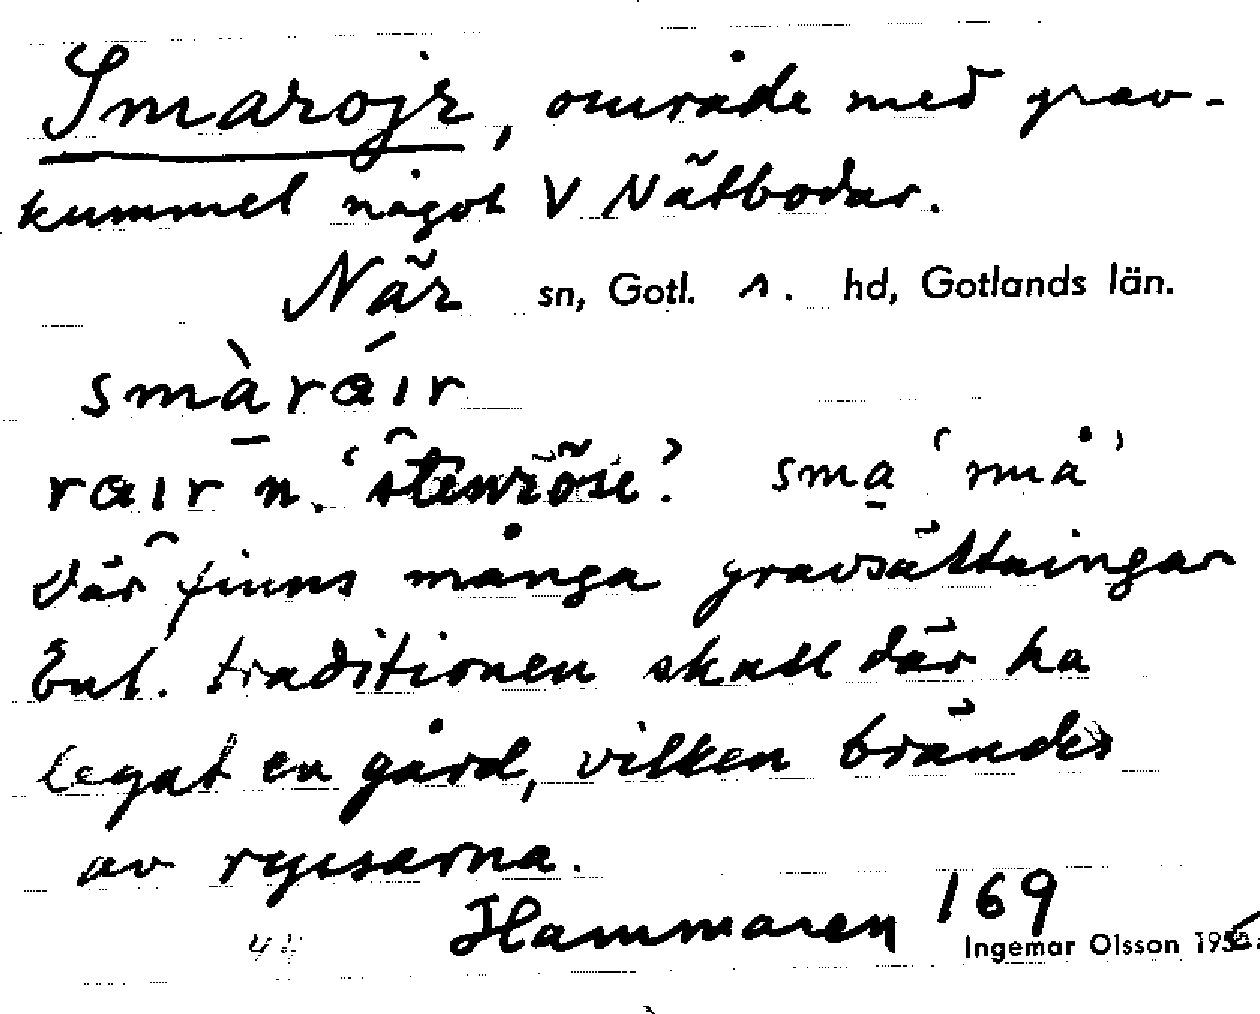 Smarojr, område med grav-
kummel något V Nätbodar.
När sn, Gotl. s. hd, Gotlands län.
smàráır
raır n. 'stenröse'. sma 'små'
Där finns många gravsättningar
Enl. traditionen skall där ha
legat en gård, vilken brändes
av ryssarna.
Hammaren 169
Ingemar Olsson 195